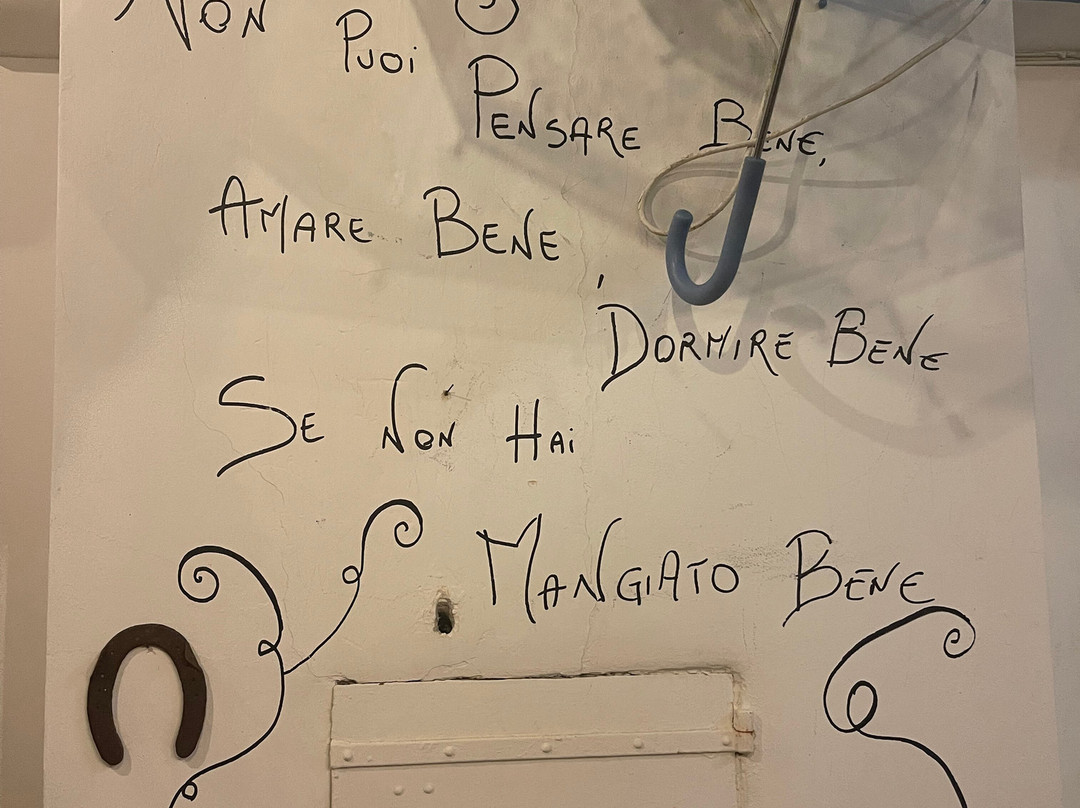 Non
Puoi
Pensare Bene,
Amare Bene,
Dormire Bene
Se Non Hai
Mangiato Bene